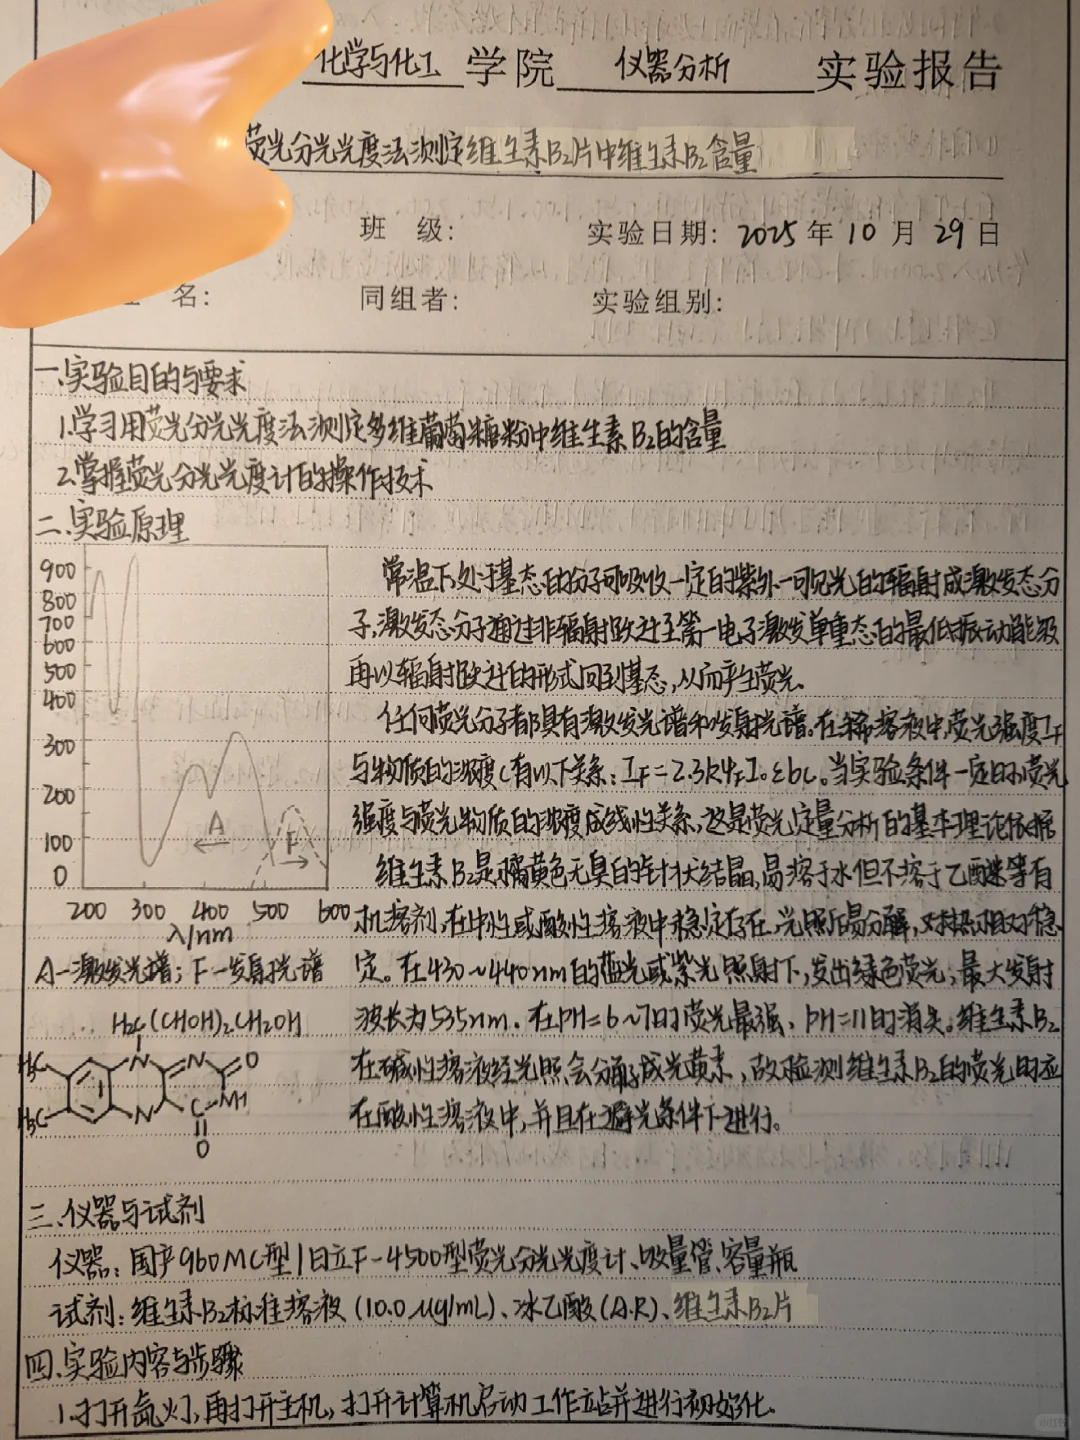 化学与化工 学院 仪器分析 实验报告
荧光分光光度法测定维生素B₂片中维生素B₂含量
班 级: 实验日期: 2025 年 10 月 29 日
名: 同组者: 实验组别:
一.实验目的与要求
1.学习用荧光分光光度法测定多维葡萄糖粉中维生素B₂的含量
2.掌握荧光分光光度计的操作技术
二.实验原理
900
800
700
600
500
400
300
200
100
0
A
F
200 300 400 500 600
λ/nm
A-激发光谱; F-发射光谱
H₂C(CHOH)₂CH₂OH
H₃C N N O
H₃C N C NH
O
常温下,处于基态的分子可吸收一定的紫外-可见光的辐射成激发态分
子,激发态分子通过非辐射跃迁至第一电子激发单重态的最低振动能级
再以辐射跃迁的形式回到基态,从而产生荧光.
任何荧光分子都具有激发光谱和发射光谱。在稀溶液中,荧光强度IF
与物质的浓度c有以下关系: IF=2.3kφFI₀εbc。当实验条件一定时,荧光
强度与荧光物质的浓度成线性关系,这是荧光定量分析的基本理论依据
维生素B₂是橘黄色无臭的针状结晶,易溶于水但不溶于乙醚等有
机溶剂,在中性或酸性溶液中稳定存在,光照后易分解,对热相对稳
定。在430~440nm的蓝光或紫光照射下,发出绿色荧光,最大发射
波长为535nm. 在pH=6~7时荧光最强, pH=11时消失。维生素B₂
在碱性溶液经光照会分解成光黄素,故检测维生素B₂的荧光时应
在酸性溶液中,并且在避光条件下进行。
三.仪器与试剂
仪器: 国产960MC型/日立F-4500型荧光分光光度计、吸量管、容量瓶
试剂: 维生素B₂标准溶液 (10.0μg/mL)、冰乙酸(A.R)、维生素B₂片
四.实验内容与步骤
1.打开氙灯,再打开主机,打开计算机启动工作站并进行初始化.